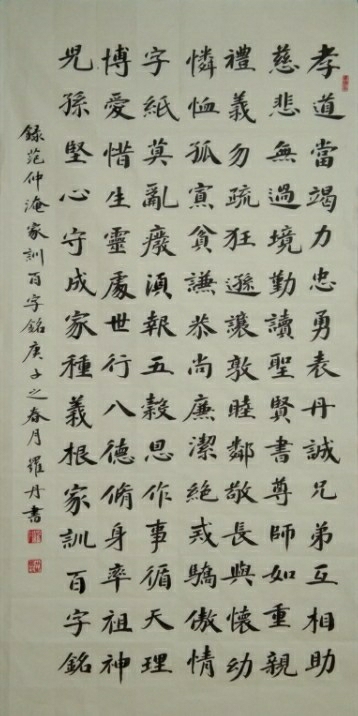 孝道當竭力忠勇表丹誠兄弟互相助
慈悲無過境勤讀聖賢書尊師如重親
禮義勿疏狂遜讓敦睦鄰敬長與懷幼
憐恤孤寡貧謙恭尚廉潔絕戒驕傲情
字紙莫亂廢須報五穀恩作事循天理
博愛惜生靈處世行八德脩身率祖神
兒孫堅心守成家種義根家訓百字銘
錄范仲淹家訓百字銘庚子之春月羅丹書